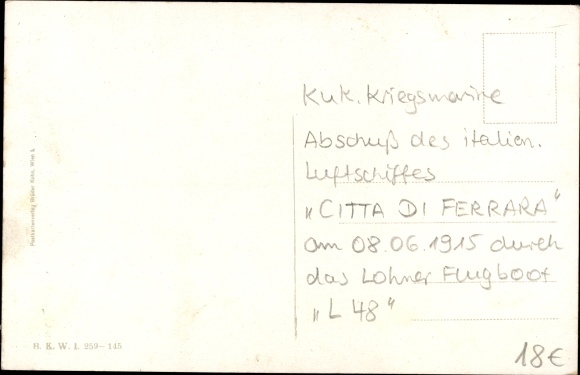 KuK. Kriegsmarine
Abschuß des italien.
Luftschiffes
„CITTA DI FERRARA"
am 08.06.1915 durch
das Lohner Flugboot
„L 48"
18€
B. K. W. I. 259-145